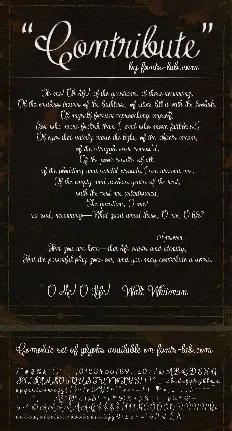 "Contribute"
by fonts-lab.com
Oh me! Oh life! of the questions of these recurring,
Of the endless trains of the faithless, of cities fill'd with the foolish,
Of myself forever reproaching myself,
(for who more foolish than I, and who more faithless?)
Of eyes that vainly crave the light, of the objects mean,
of the struggle ever renew'd,
Of the poor results of all,
of the plodding and sordid crowds I see around me,
Of the empty and useless years of the rest,
with the rest me intertwined,
The question, O me!
so sad, recurring—What good amid these, O me, O life?
Answer.
That you are here—that life exists and identity,
That the powerful play goes on, and you may contribute a verse.
O Me! O Life! Walt Whitman
Complete set of glyphs available on fonts-lab.com